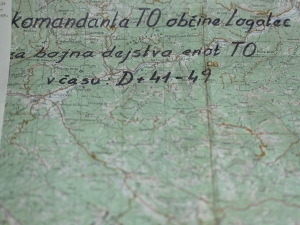 komandanta TO občine Logatec
za bojna dejstva enot TO
v času: D+41-49